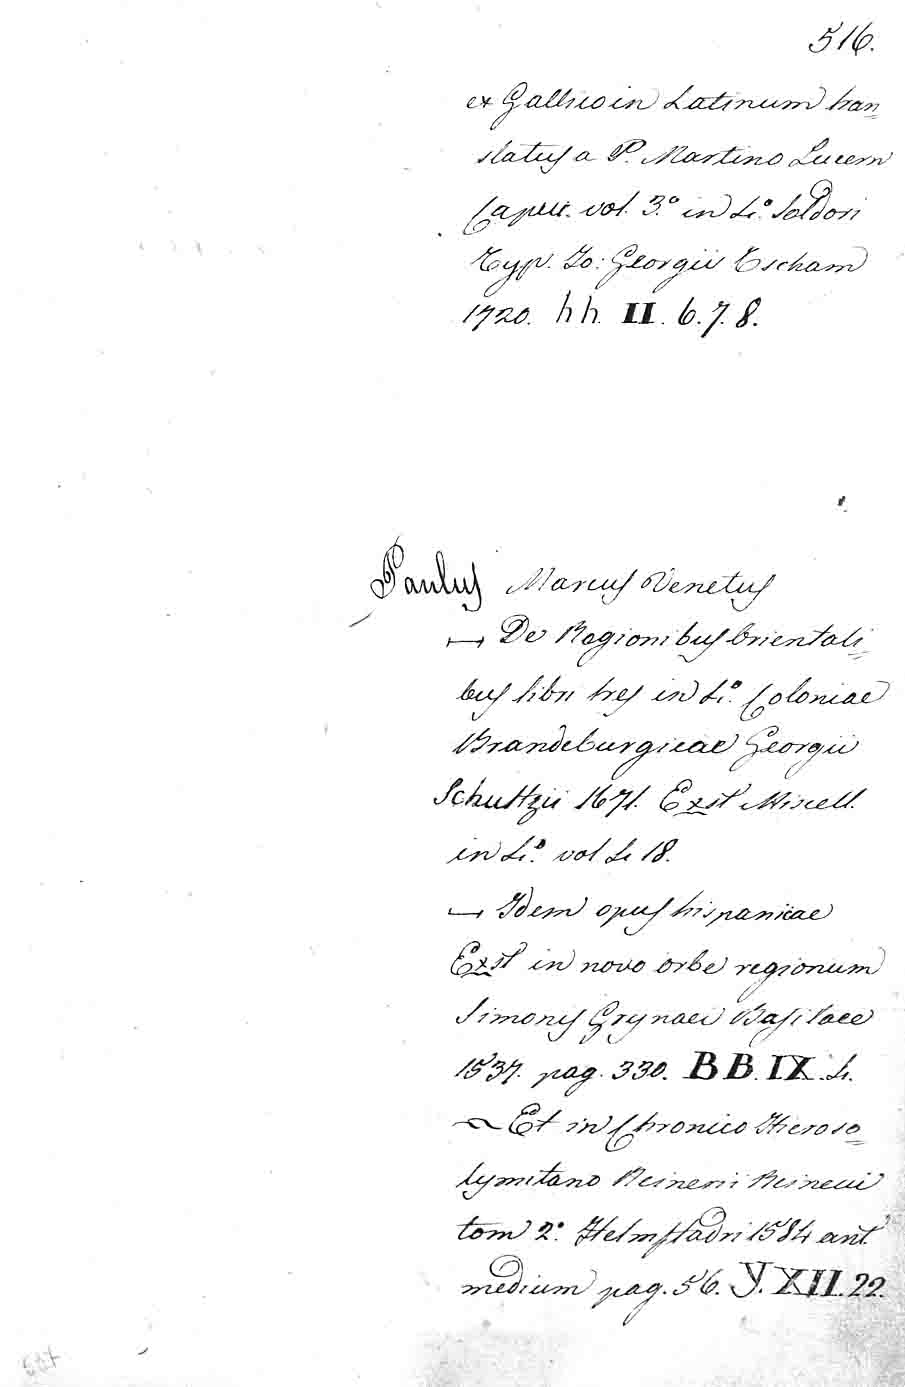 516.
ex Gallico in Latinum tran=
slatus a P. Martino Lucern
Capuc. vol. 3.º in 4.º Soldori
Typ. Jo: Georgii Tscham
1720. hh. II. 6. 7. 8.
Paulus Marcus Venetus
De Regionibus Orientali=
bus libri tres in 4.º Coloniae
Brandeburgicae Georgii
Schultzii 1671. Exst Miscell.
in 4.º vol 4 18.
Idem opus hispanicae
Exst in novo orbe regionum
Simonis Grynaei Basileae
1537. pag. 330. BB. IX. 4.
Et in Chronico Hieroso=
lymitano Reinerii Reineccii
tom 2.º Helmstadri 1584 ant.
medium pag. 56. Y. XII. 22.